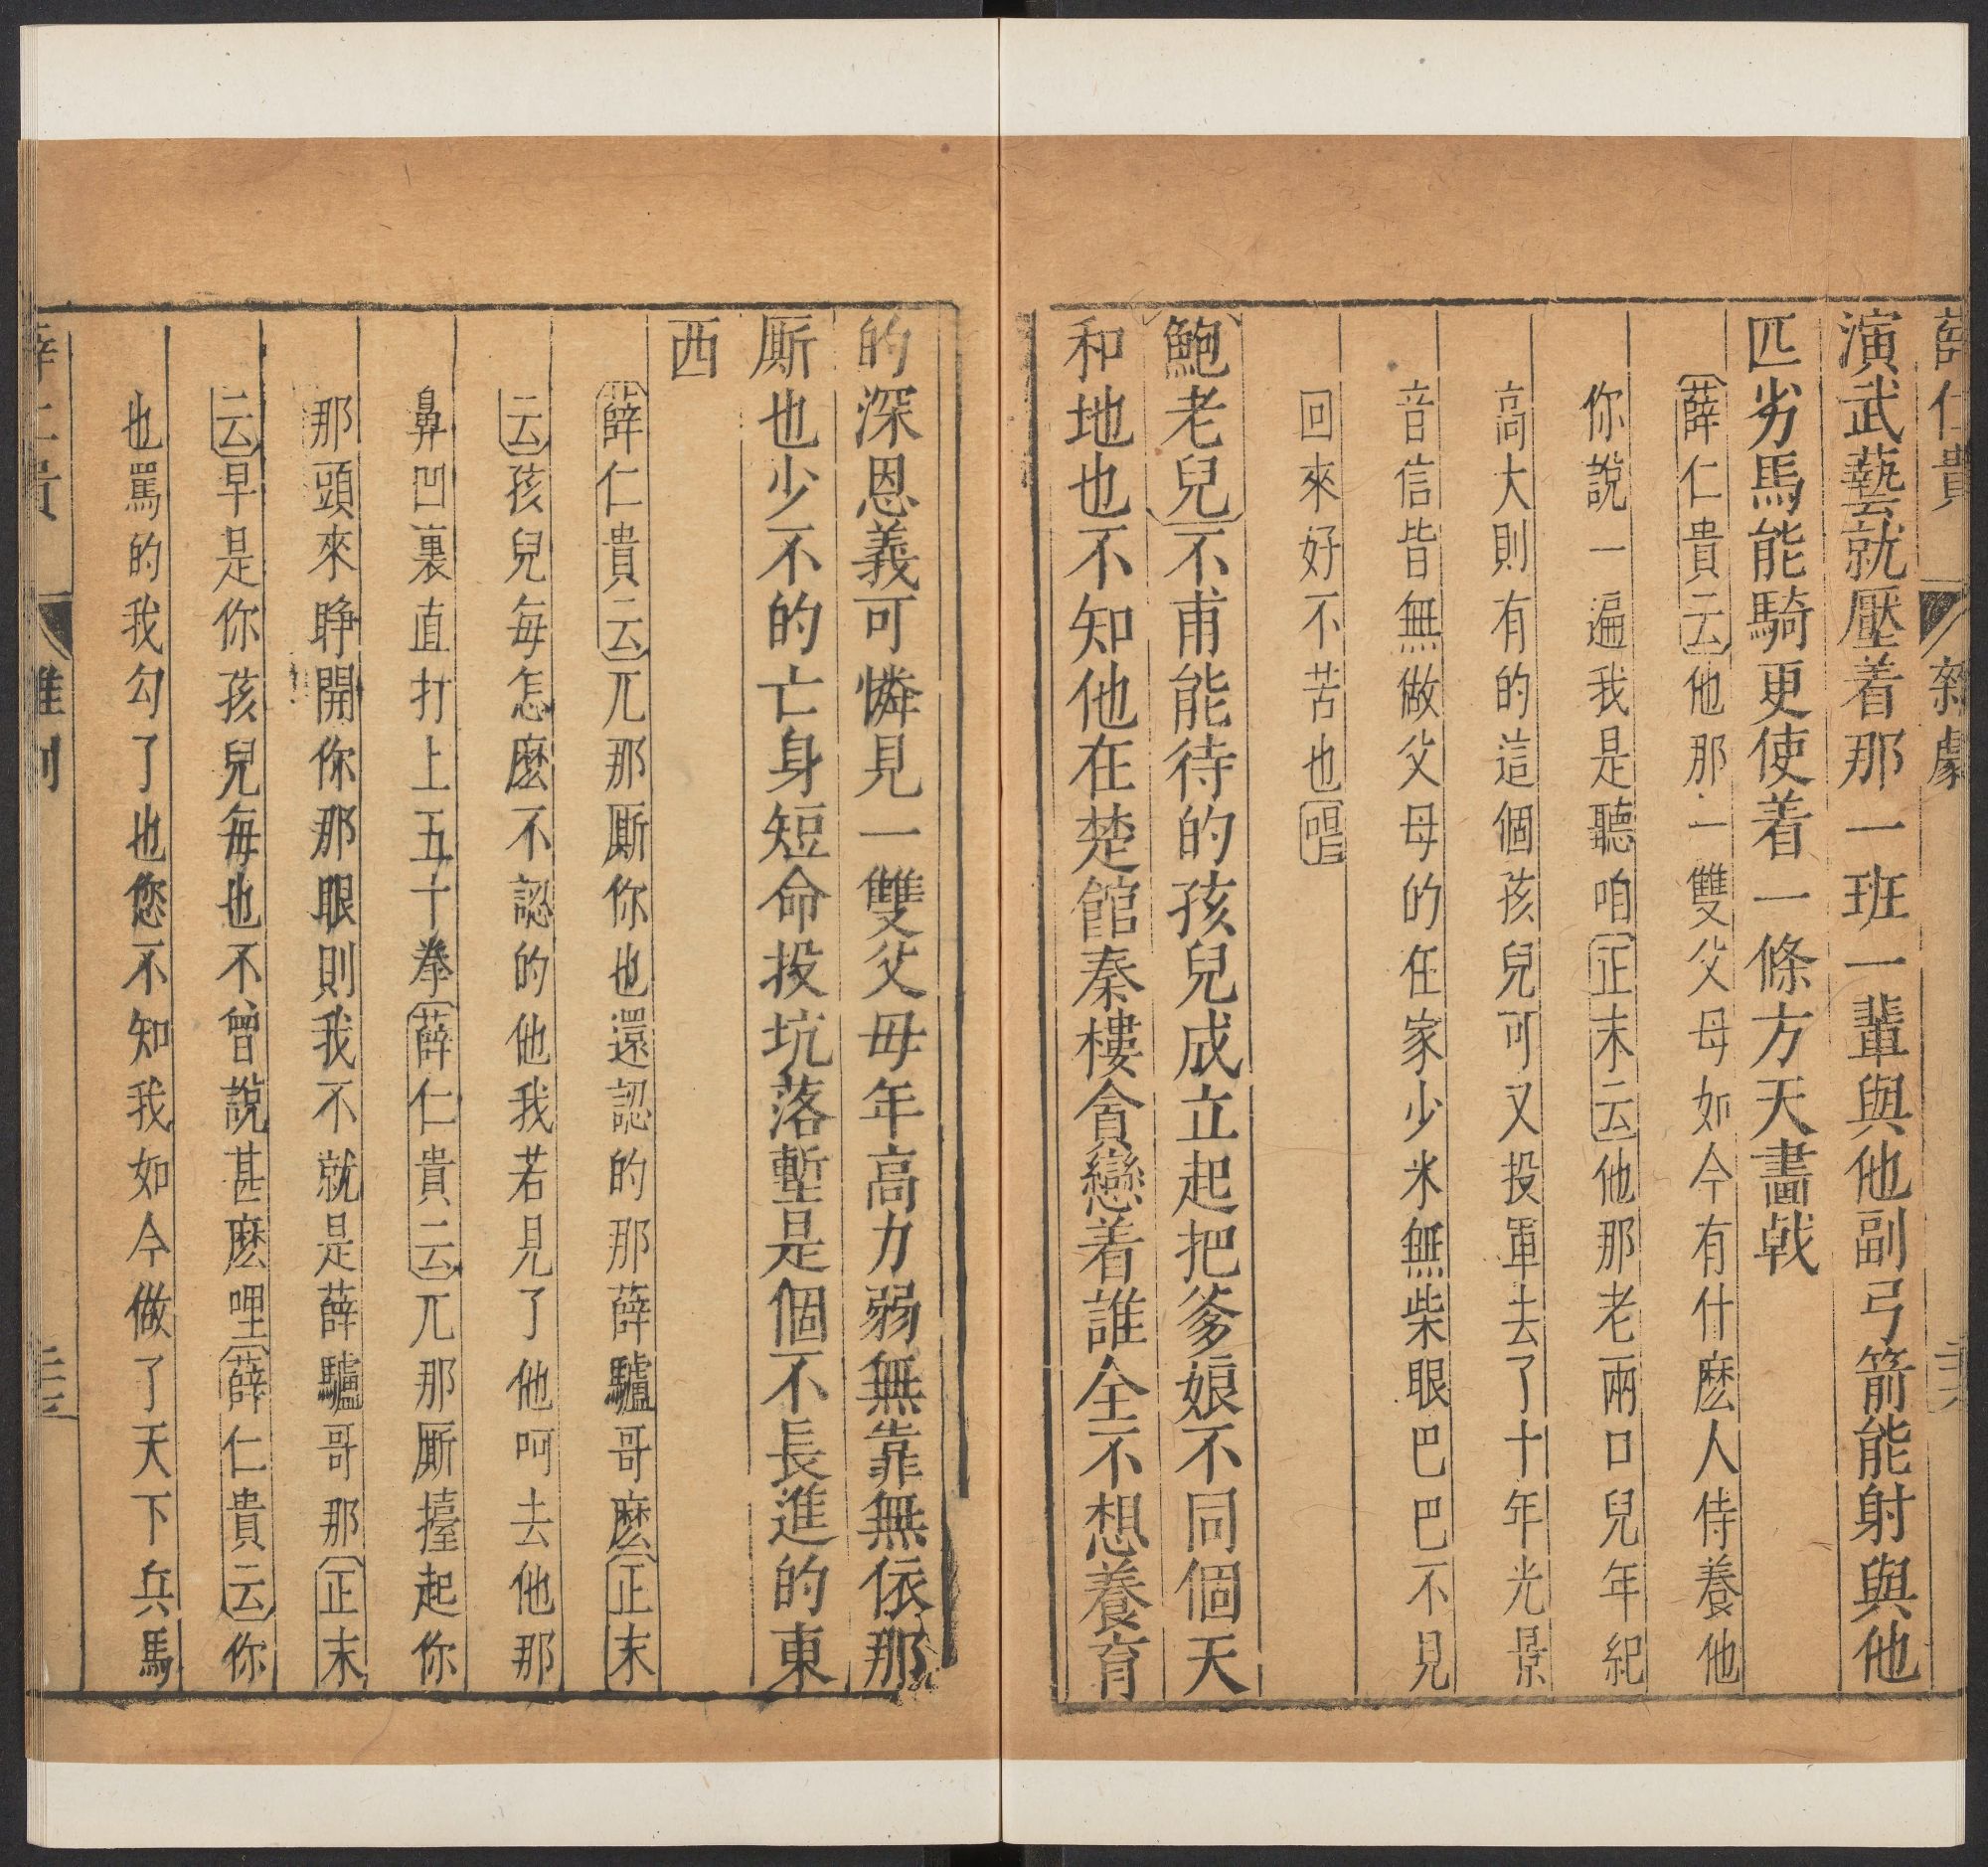 薛仁貴 雜劇 二六
演武藝就壓着那一班一輩與他副弓箭能射與他
匹劣馬能騎更使着一條方天畫戟
薛仁貴云他那一雙父母如今有什麽人侍養他
你說一遍我是聽咱正末云他那老兩口兒年紀
高大則有的這個孩兒可又投軍去了十年光景
音信皆無做父母的在家少米無柴眼巴巴不見
回來好不苦也唱
鮑老兒不甫能待的孩兒成立起把爹娘不同個天
和地也不知他在楚館秦樓貪戀着誰全不想養育
的深恩義可憐見一雙父母年高力弱無靠無依那
厮也少不的亡身短命投坑落塹是個不長進的東
西
薛仁貴云兀那厮你也還認的那薛驢哥麽正末
云孩兒每怎麽不認的他我若見了他呵去他那
鼻凹裏直打上五十拳薛仁貴云兀那厮擡起你
那頭來睜開你那眼則我不就是薛驢哥那正末
云早是你孩兒每也不曾說甚麽哩薛仁貴云你
也罵的我勾了也您不知我如今做了天下兵馬